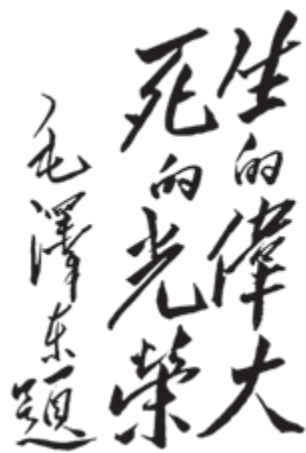 生的偉大
死的光榮
毛澤东題